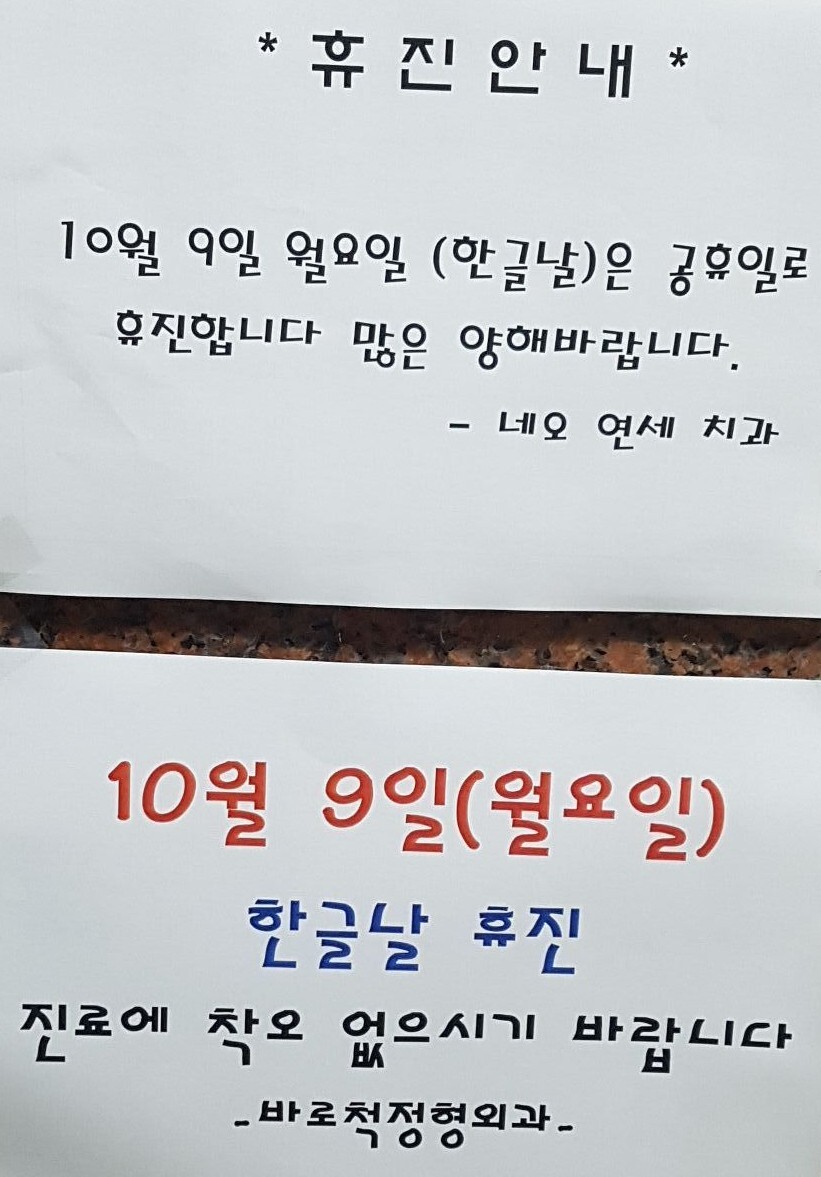 * 휴 진 안 내 *
10월 9일 월요일 (한글날)은 공휴일로
휴진합니다 많은 양해바랍니다.
- 네오 연세 치과
10월 9일(월요일)
한글날 휴진
진료에 착오 없으시기 바랍니다
-바로척정형외과-